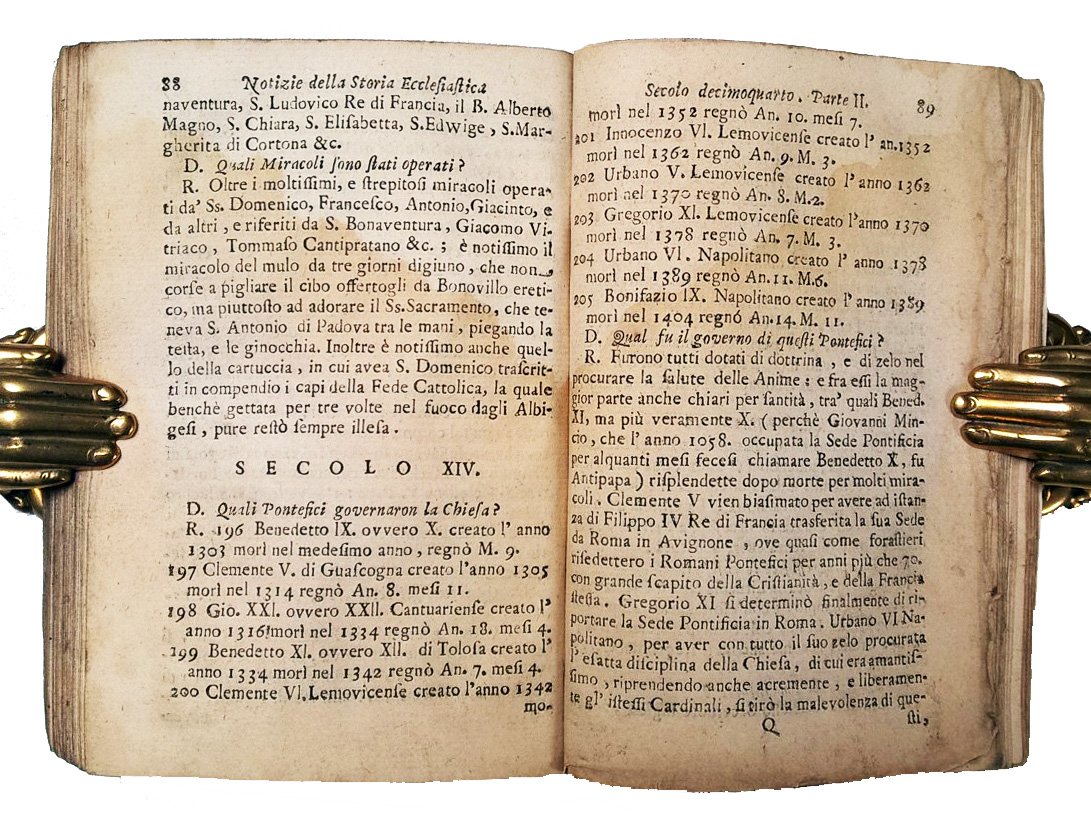 88 Notizie della Storia Eccleſiaſtica
naventura, S. Ludovico Re di Francia, il B. Alberto
Magno, S. Chiara, S. Eliſabetta, S.Edwige, S.Mar-
gherita di Cortona &c.
D. Quali Miracoli ſono ſtati operati?
R. Oltre i moltiſſimi, e ſtrepitoſi miracoli opera-
ti da' Ss. Domenico, Franceſco, Antonio,Giacinto, e
da altri, e riferiti da S. Bonaventura, Giacomo Vi-
triaco, Tommaſo Cantipratano &c.; è notiſſimo il
miracolo del mulo da tre giorni digiuno, che non
corſe a pigliare il cibo offertogli da Bonovillo ereti-
co, ma piuttoſto ad adorare il Ss.Sacramento, che te-
neva S. Antonio di Padova tra le mani, piegando la
teſta, e le ginocchia. Inoltre è notiſſimo anche quel-
lo della cartuccia, in cui avea S. Domenico traſcrit-
ti in compendio i capi della Fede Cattolica, la quale
benchè gettata per tre volte nel fuoco dagli Albi-
geſi, pure reſtò ſempre illeſa.
SECOLO XIV.
D. Quali Pontefici governaron la Chieſa?
R. 196 Benedetto IX. ovvero X. creato l' anno
1303 morì nel medeſimo anno, regnò M. 9.
197 Clemente V. di Guaſcogna creato l'anno 1305
morì nel 1314 regnò An. 8. meſi 11.
198 Gio. XXI. ovvero XXII. Cantuarienſe creato l'
anno 1316 morì nel 1334 regnò An. 18. meſi 4.
199 Benedetto XI. ovvero XII. di Toloſa creato l'
anno 1334 morì nel 1342 regnò An. 7. meſi 4.
200 Clemente VI. Lemovicenſe creato l'anno 1342
mo-
Secolo decimoquarto. Parte II. 89
morì nel 1352 regnò An. 10. meſi 7.
201 Innocenzo VI. Lemovicenſe creato l' an.1352
morì nel 1362 regnò An. 9. M. 3.
202 Urbano V. Lemovicenſe creato l' anno 1362
morì nel 1370 regnò An. 8. M.2.
203 Gregorio XI. Lemovicenſe creato l'anno 1370
morì nel 1378 regnò An. 7. M. 3.
204 Urbano VI. Napolitano creato l' anno 1378
morì nel 1389 regnò An. 11. M.6.
205 Bonifazio IX. Napolitano creato l' anno 1389
morì nel 1404 regnó An.14. M. 11.
D. Qual fu il governo di queſti Pontefici?
R. Furono tutti dotati di dottrina, e di zelo nel
procurare la ſalute delle Anime: e fra eſſi la mag-
gior parte anche chiari per ſantità, tra' quali Bened.
XI, ma più veramente X. (perchè Giovanni Min-
cio, che l' anno 1058. occupata la Sede Pontificia
per alquanti meſi feceſi chiamare Benedetto X, fu
Antipapa) riſplendette dopo morte per molti mira-
coli. Clemente V vien biaſimato per avere ad iſtan-
za di Filippo IV Re di Francia trasferita la ſua Sede
da Roma in Avignone, ove quaſi come foraſtieri
riſedettero i Romani Pontefici per anni più che 70.
con grande ſcapito della Criſtianità, e della Francia
ſteſſa. Gregorio XI ſi determinò finalmente di ri-
portare la Sede Pontificia in Roma. Urbano VI Na-
politano, per aver con tutto il ſuo zelo procurata
l' eſatta diſciplina della Chieſa, di cui era amantiſ-
ſimo, riprendendo anche acremente, e liberamen-
te gl' iſteſſi Cardinali, ſi tirò la malevolenza di que-
Q ſti,